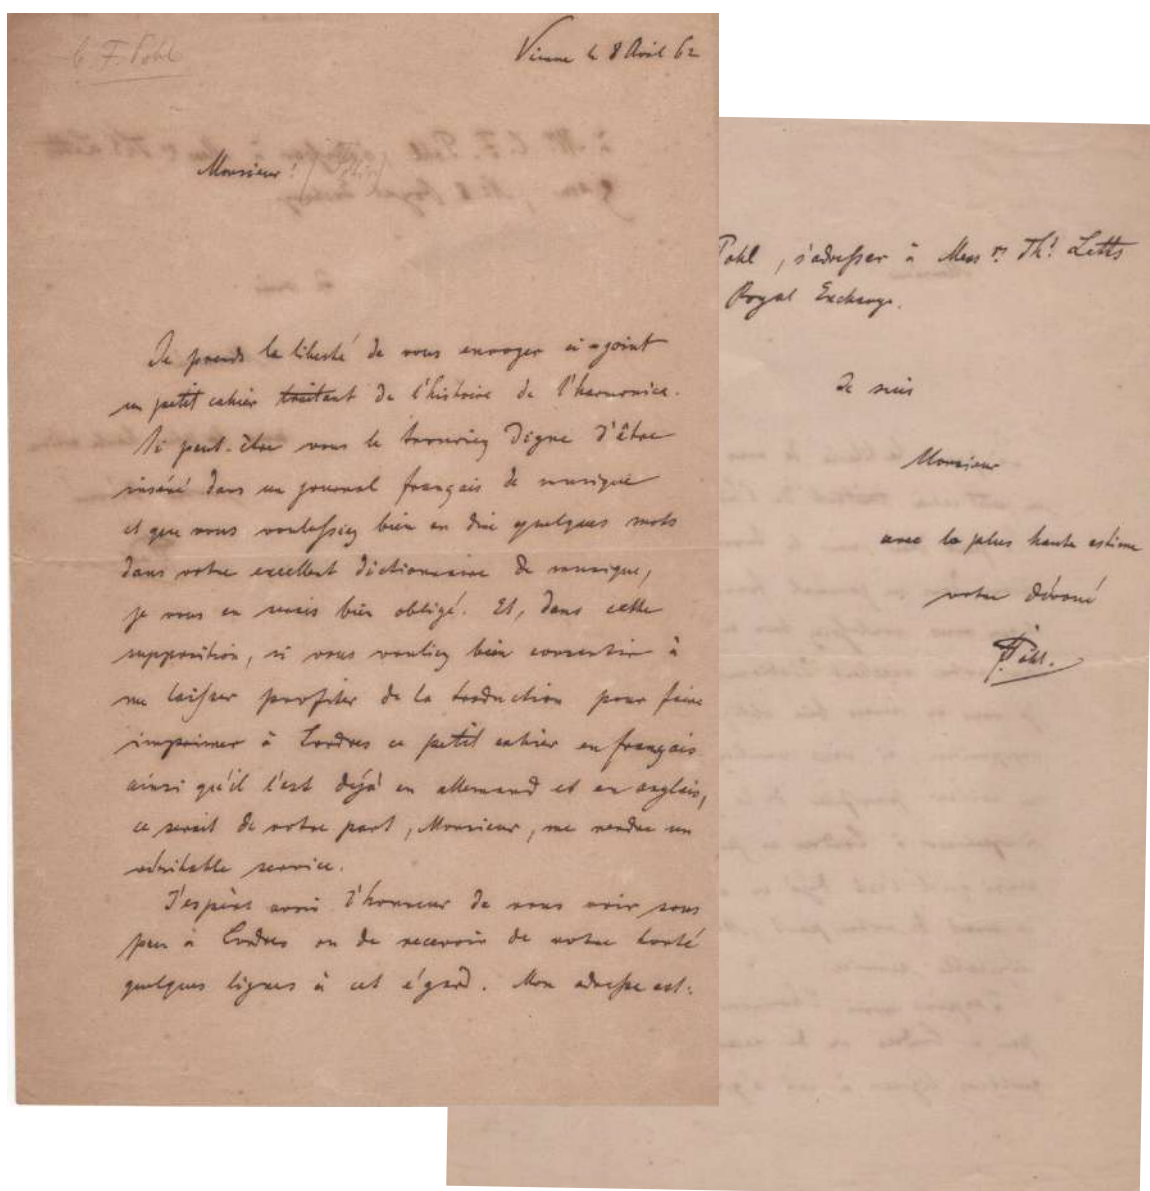 C. F. Pohl
Vienne le 8 Avril 62
Monsieur!
Je prends la liberté de vous envoyer ci-joint
un petit cahier traitant de l'histoire de l'harmonica.
Si peut-être vous le trouviez digne d'être
inséré dans un journal français de musique
et que vous voulussiez bien en dire quelques mots
dans votre excellent dictionnaire de musique,
je vous en serais bien obligé. Et, dans cette
supposition, si vous vouliez bien consentir à
me laisser profiter de la traduction pour faire
imprimer à Londres ce petit cahier en français
ainsi qu'il l'est déjà en allemand et en anglais,
ce serait de votre part, Monsieur, me rendre un
véritable service.
J'espère avoir l'honneur de vous voir sous
peu à Londres ou de recevoir de votre bonté
quelques lignes à cet égard. Mon adresse est:
Pohl, s'adresser à Messrs. Ths. Letts
Royal Exchange.
Je suis
Monsieur
avec la plus haute estime
votre dévoué
Pohl.